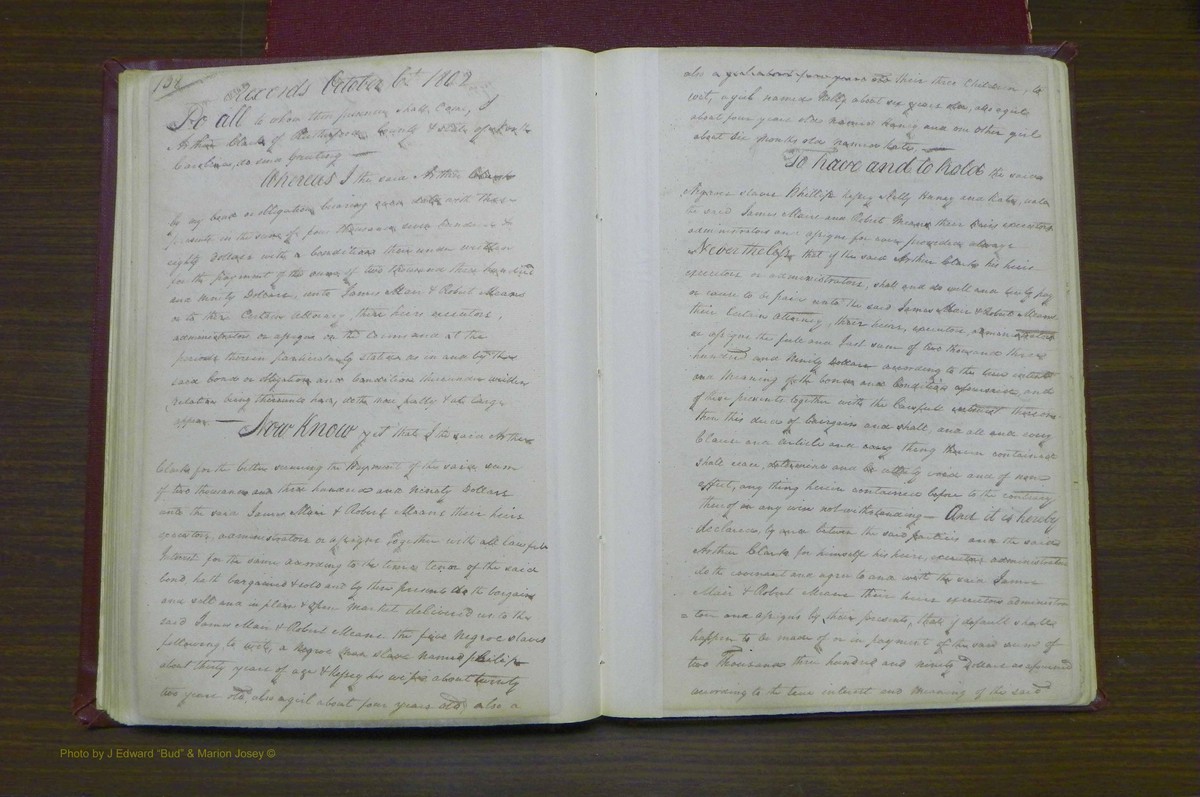 Records October 6th 1802
To all to whom these presents shall Come, I
Arthur Clark of Rutherford County & State of North
Carolina, do send Greeting
Whereas I the said Arthur Clark
by my bond or obligation bearing even date with these
presents in the sum of four thousand seven hundred &
eighty Dollars with a Condition there under written
for the payment of the sum of two thousand three hundred
and ninety Dollars, unto James Mair & Robert Means
or to their Certain attorney, their heirs executors,
administrators or assigns on the terms and at the
periods therein particularly stated as in and by the
said bond or obligation and Condition thereunder written
relation being thereunto had, doth more fully & at large
appear
Now Know yet that I the said Arthur
Clark for the better securing the Payment of the said sum
of two thousand and three hundred and Ninety Dollars
unto the said James Mair & Robert Means their heirs
executors, administrators or assigns Together with all lawful
Interest for the same according to the time tenor of the said
bond hath bargained & sold and by these presents doth bargain
and sell and in plain & open Market delivered us to the
said James Mair & Robert Means the five Negroe slaves
following to wit, a Negroe man slave named Philip
about thirty years of age & hepsey his wife about twenty
two years old, also a girl about four years old, also a
also a girl about years old their three Children, to
wit, a girl named Nelly about six years old, also a girl
about four years old named Haney and one other girl
about six months old named Kate.
To have and to hold the said
Negroe slaves Phillip hepsey Nelly Haney and Kate, unto
the said James Maire and Robert Means their heirs executors
administrators and assigns for ever provided always
Nevertheless that if the said Arthur Clark his heirs
executors or administrators, shall and do well and truly pay
or cause to be paid unto the said James Mair & Robert Means
their Certain attorney, their heirs, executors, administrators
or assigns the full and Just sum of two thousand three
hundred and Ninety Dollars according to the true intent
and Meaning of the bond and Condition aforesaid, and
of these presents together with the lawfull interest thereon
then this deed of bargain and shall, and all and every
Clause and article and every thing therein contained
shall cease, determine and be utterly void and of none
effect, any thing herein contained before to the contrary
thereof in any wise not withstanding — And it is hereby
declared, by and between the said parties and the said
Arthur Clark for himself his heirs, executors administrators
doth covenant and agree to and with the said James
Mair & Robert Means their heirs executors administra
=tors and assigns by these presents, that if default shall
happen to be made of or in payment of the said sum of
two Thousand three hundred and ninety Dollars as aforesaid
according to the true interest and meaning of the said
Photo by J Edward “Bud” & Marion Josey ©